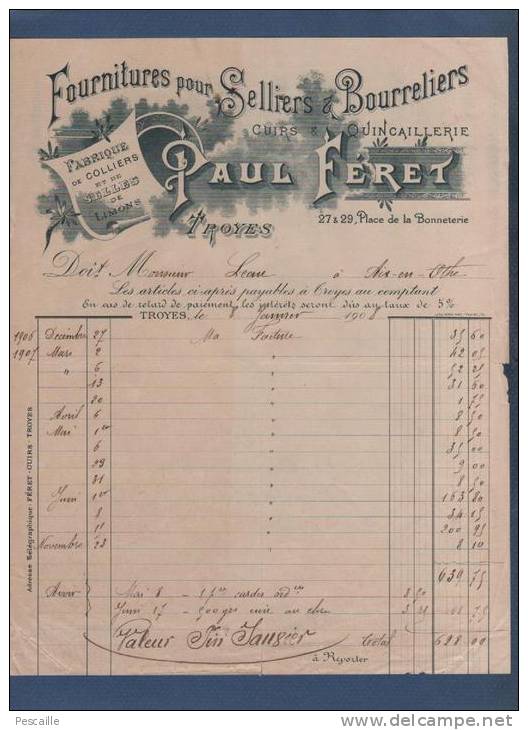 Fournitures pour Selliers & Bourreliers
CUIRS & QUINCAILLERIE
FABRIQUE
DE COLLIERS
ET DE
SELLES
DE
LIMONS
PAUL FÉRET
TROYES
27 & 29, Place de la Bonneterie
Doit Monsieur à Aix-en-Othe
Les articles ci-après payables à Troyes au comptant
En cas de retard de paiement les intérêts seront dûs au taux de 5%
TROYES, le Janvier 1908
1906 Décembre 27 Ma Facture 35 60
1907 Mars 2 " 62 05
" 6 " 52 25
13 " 31 60
20 " 1 75
Avril 6 " 8 50
Mai 1er " 8 50
6 " 35 00
29 " 9 00
31 " 8 50
Juin 1er " 163 80
8 " 34 15
11 " 200 95
Novembre 23 " 8 10
639 75
Avoir Mai 8 - 1 cardes 8 50
Juin 17 - cuir au 3 75
Valeur Fin Total 628 00
à Reporter
Adresse Télégraphique: FÉRET-CUIRS-TROYES
Pescaille
http://www.delcampe.net